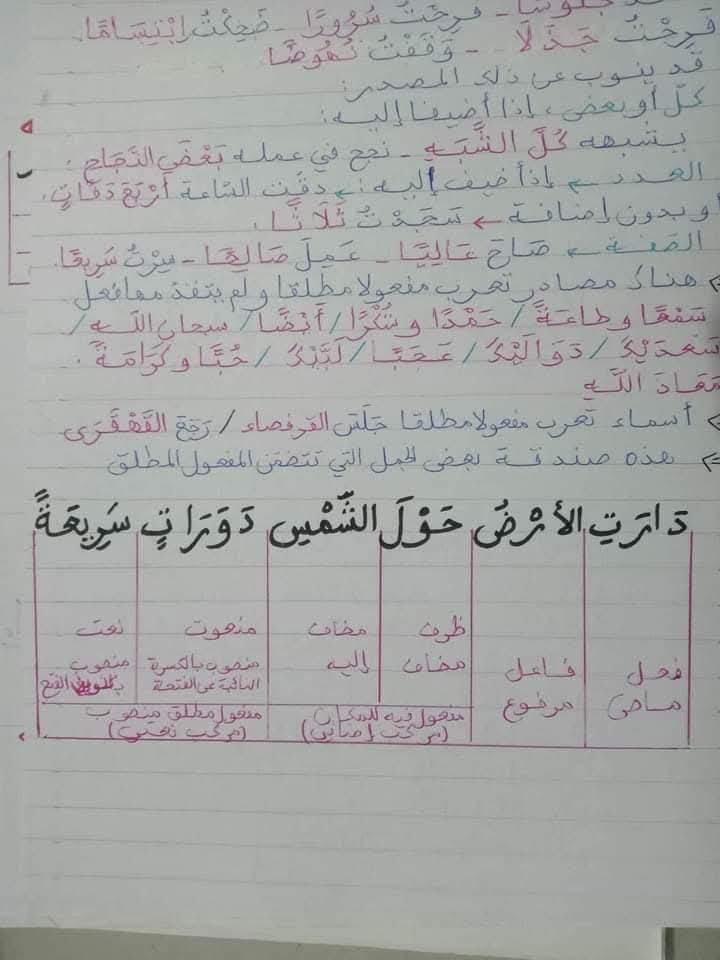 جلوسًا - فَرِحْتُ سُرُورًا - ضَحِكْتُ اِبْتِسَامًا.
فَرِحْتُ جَذَلًا - وَقَفْتُ نُهُوضًا
قد ينوب عن ذلك المصدر:
كلّ أو بعض، إذا أضيفا إليه:
يشبهه كُلَّ الشَّبَهِ - نجح في عمله بَعْضَ النَّجَاحِ.
العدد ← إذا أضيف إليه: ← دقّت السّاعة أَرْبَعَ دَقَّاتٍ.
أو بدون إضافة ← سَجَدْتُ ثَلَاثًا.
الصفة ← صَاحَ عَالِيًا - عَمِلَ صَالِحًا - سِرْتُ سَرِيعًا.
هناك مصادر تعرب مفعولا مطلقا ولم يتفذ معا فعل
سَمْعًا وطَاعَةً / حَمْدًا وشُكْرًا / أَيْضًا / سبحان اللّه /
سَعْدَيْكَ / دَوَالَيْكَ / عَجَبًا / لَبَّيْكَ / حُبًّا وكَرَامَةً.
مَعَاذَ اللّهِ
أسماء تعرب مفعولا مطلقا جَلَسَ القرفصاء / رَجَعَ القَهْقَرَى
هذه صندقة بعض الجمل التي تتضمّن المفعول المطلق
دَارَتِ الأَرْضُ حَوْلَ الشَّمْسِ دَوَرَاتٍ سَرِيعَةً
ظرف مضاف منعوت نعت
فعل فاعل مضاف إليه منصوب بالكسرة منصوب
ماضي مرفوع النائبة عن الفتحة بتنوين الفتح
مفعول فيه للمكان مفعول مطلق منصوب
(مركب إضافي) (مركب نعتي)